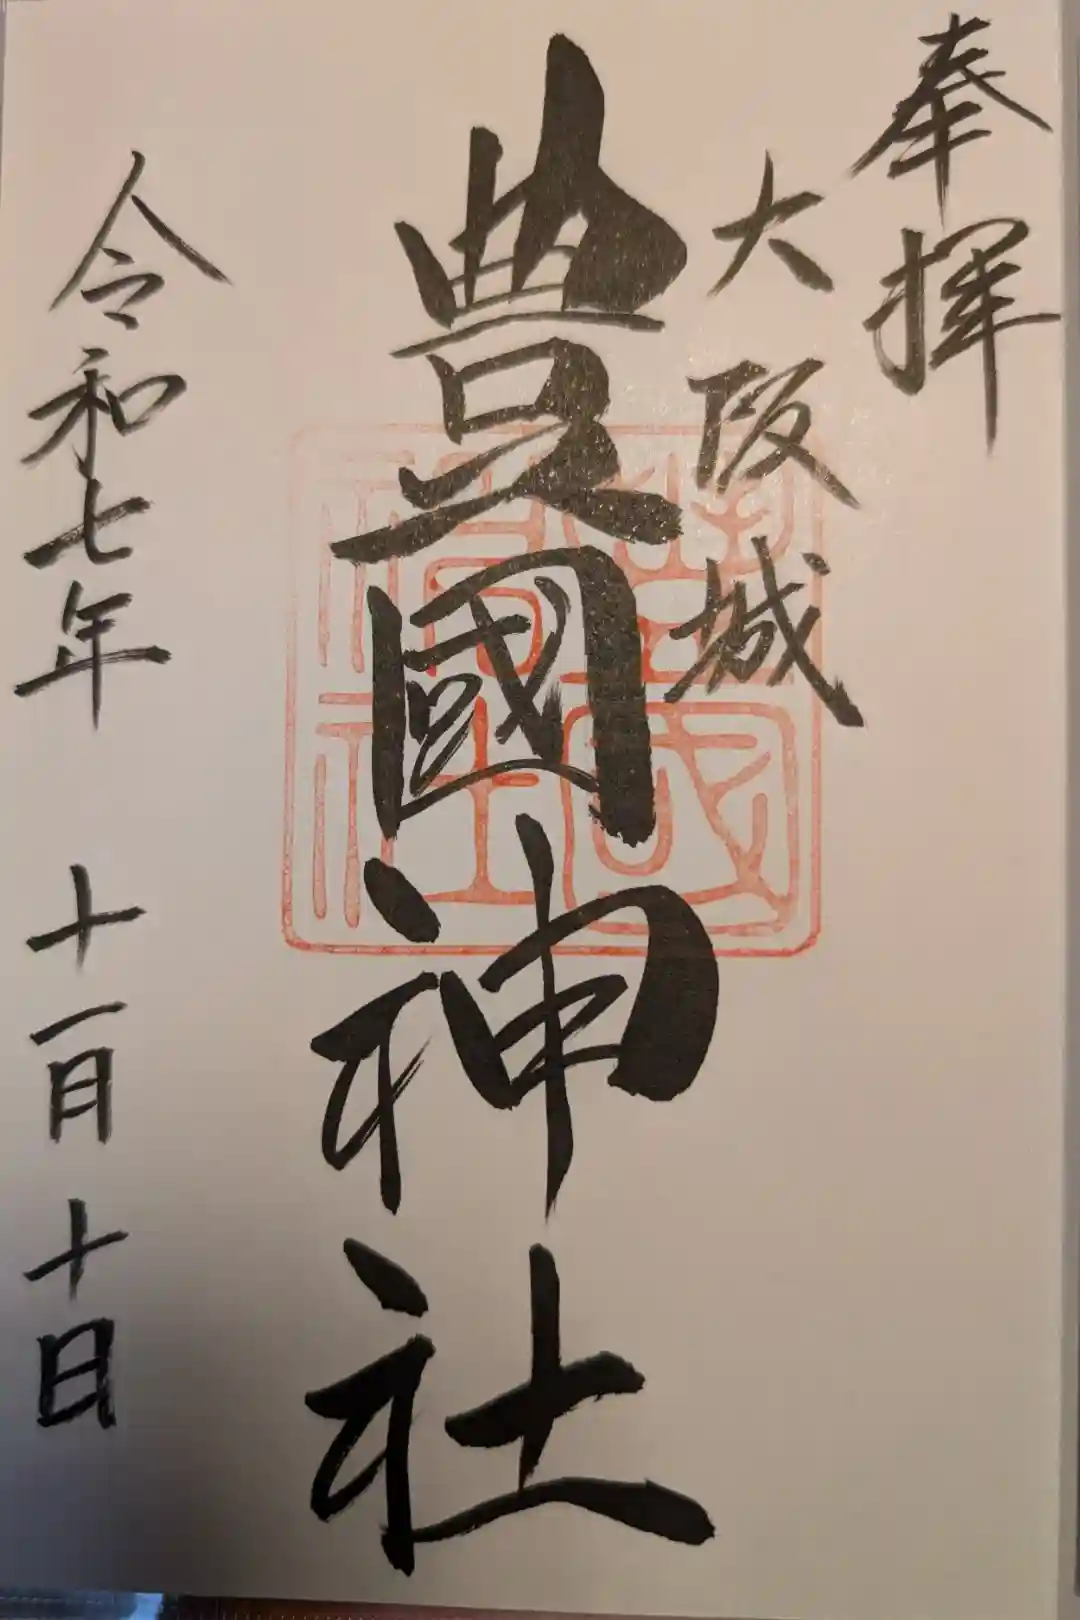 奉拝
大阪城
豊國神社
豊國
神社
令和七年 十一月十日